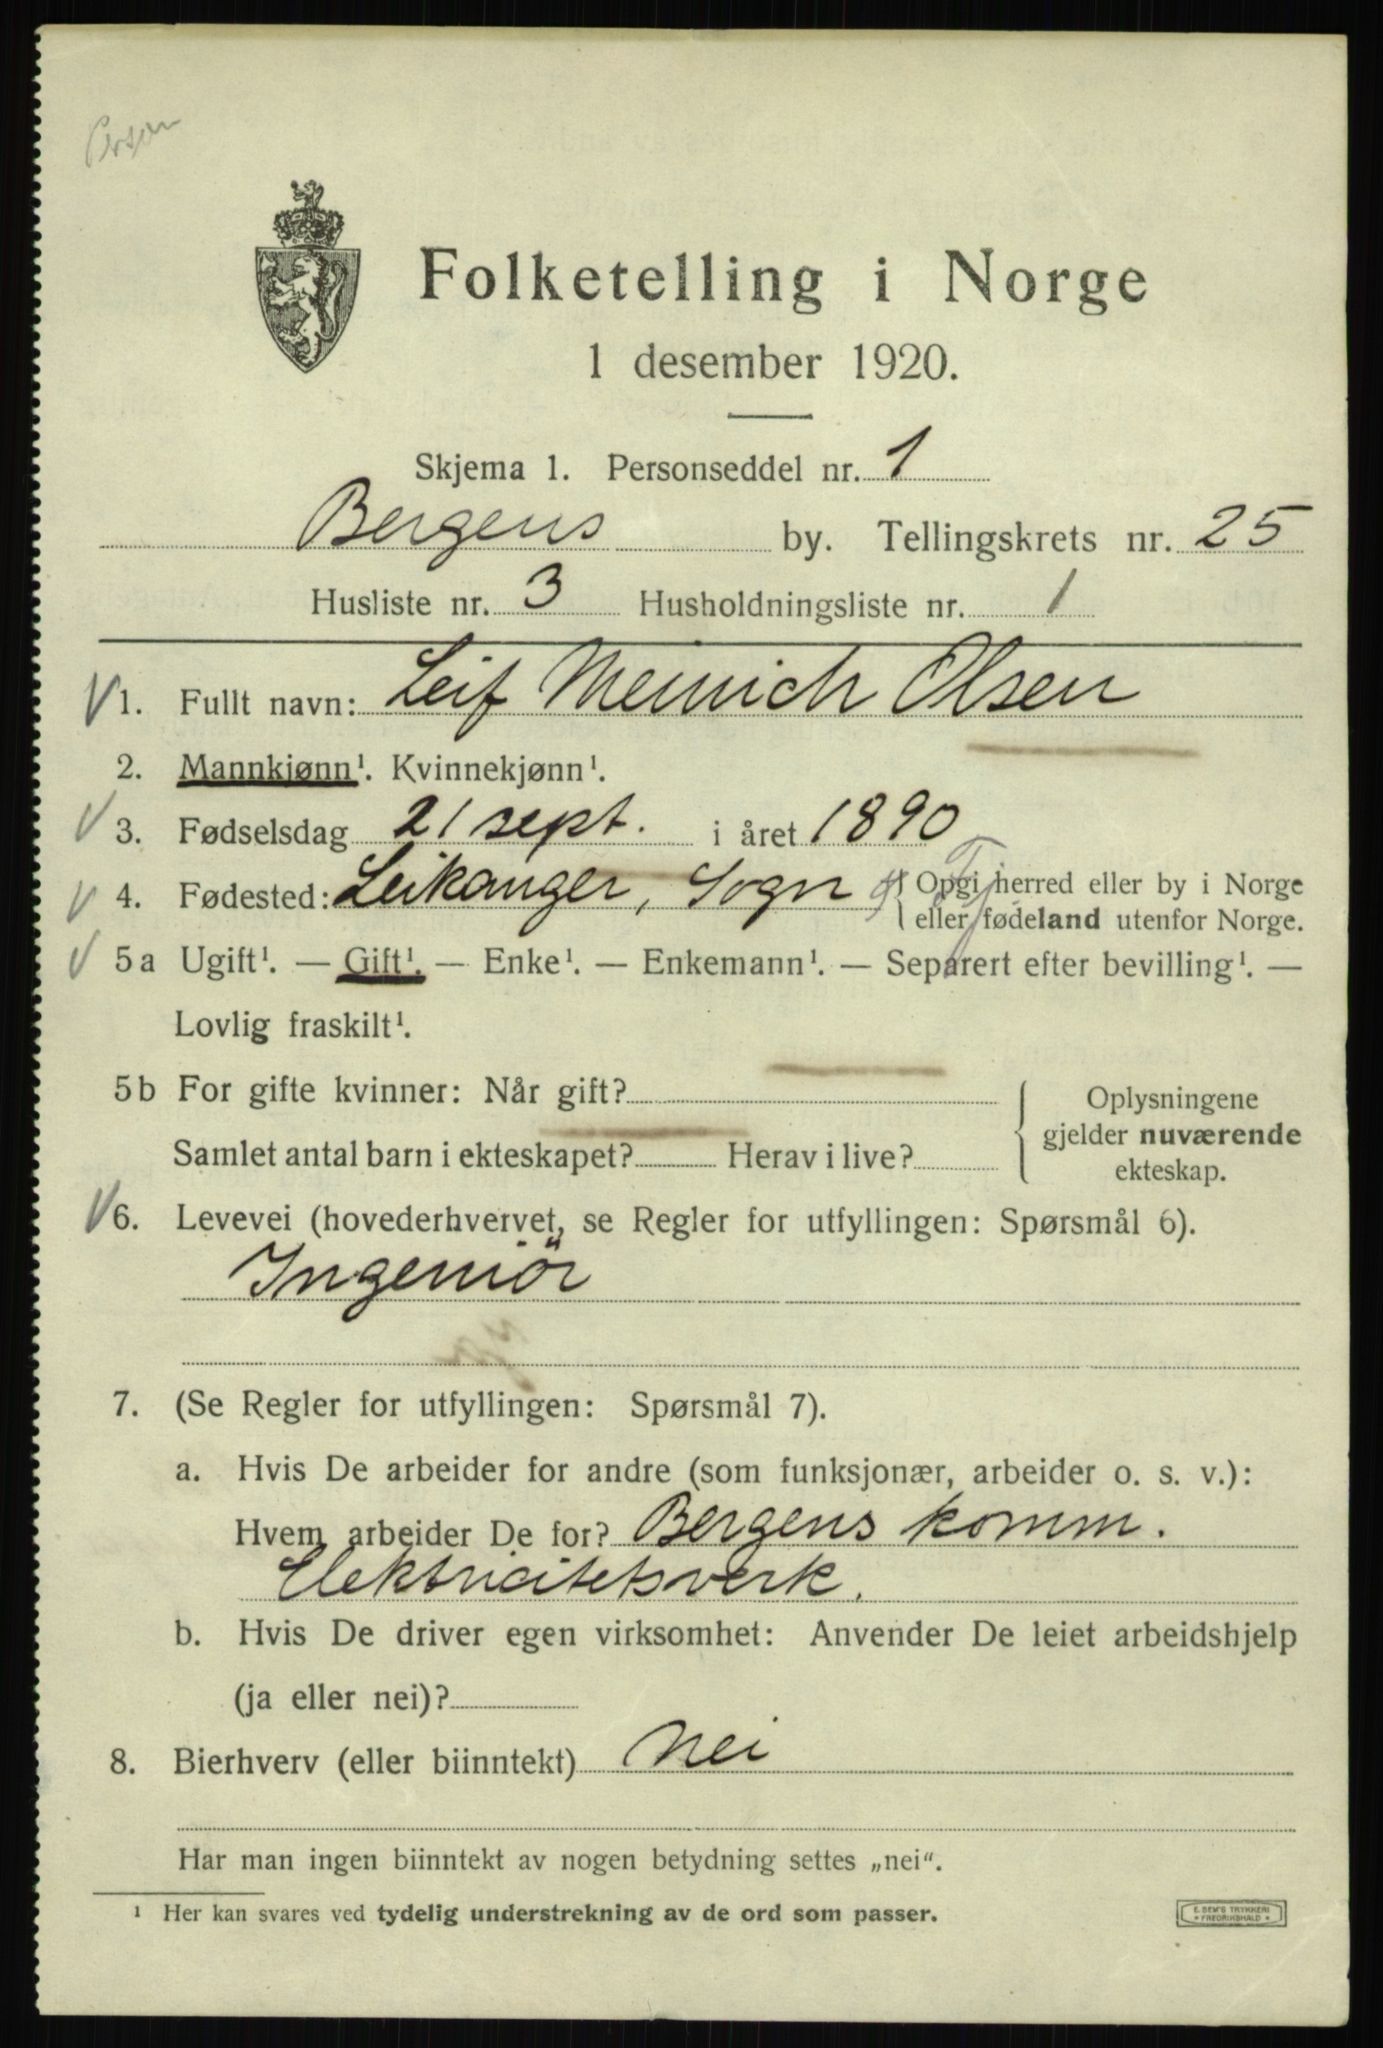 Folketelling i Norge
1 desember 1920.
Skjema 1. Personseddel nr. 1
Bergens by. Tellingskrets nr. 25
Husliste nr. 3 Husholdningsliste nr. 1
V 1. Fullt navn: Leif Meinich Olsen
2. Mannkjønn¹. Kvinnekjønn¹.
V 3. Fødselsdag 21 sept. i året 1890
V 4. Fødested: Leikanger, Sogn { Opgi herred eller by i Norge
eller fødeland utenfor Norge.
V 5a Ugift¹. — Gift¹. — Enke¹. — Enkemann¹. — Separert efter bevilling¹. —
Lovlig fraskilt¹.
5b For gifte kvinner: Når gift?
Samlet antal barn i ekteskapet? Herav i live?
{ Oplysningene
gjelder nuværende
ekteskap.
V 6. Levevei (hovederhvervet, se Regler for utfyllingen: Spørsmål 6).
Ingeniör
7. (Se Regler for utfyllingen: Spørsmål 7).
a. Hvis De arbeider for andre (som funksjonær, arbeider o. s. v.):
Hvem arbeider De for? Bergens komm.
Elektricitetsverk.
b. Hvis De driver egen virksomhet: Anvender De leiet arbeidshjelp
(ja eller nei)?
8. Bierhverv (eller biinntekt) Nei
Har man ingen biinntekt av nogen betydning settes „nei“.
¹ Her kan svares ved tydelig understrekning av de ord som passer.
E. SEM'S TRYKKERI
FREDRIKSHALD